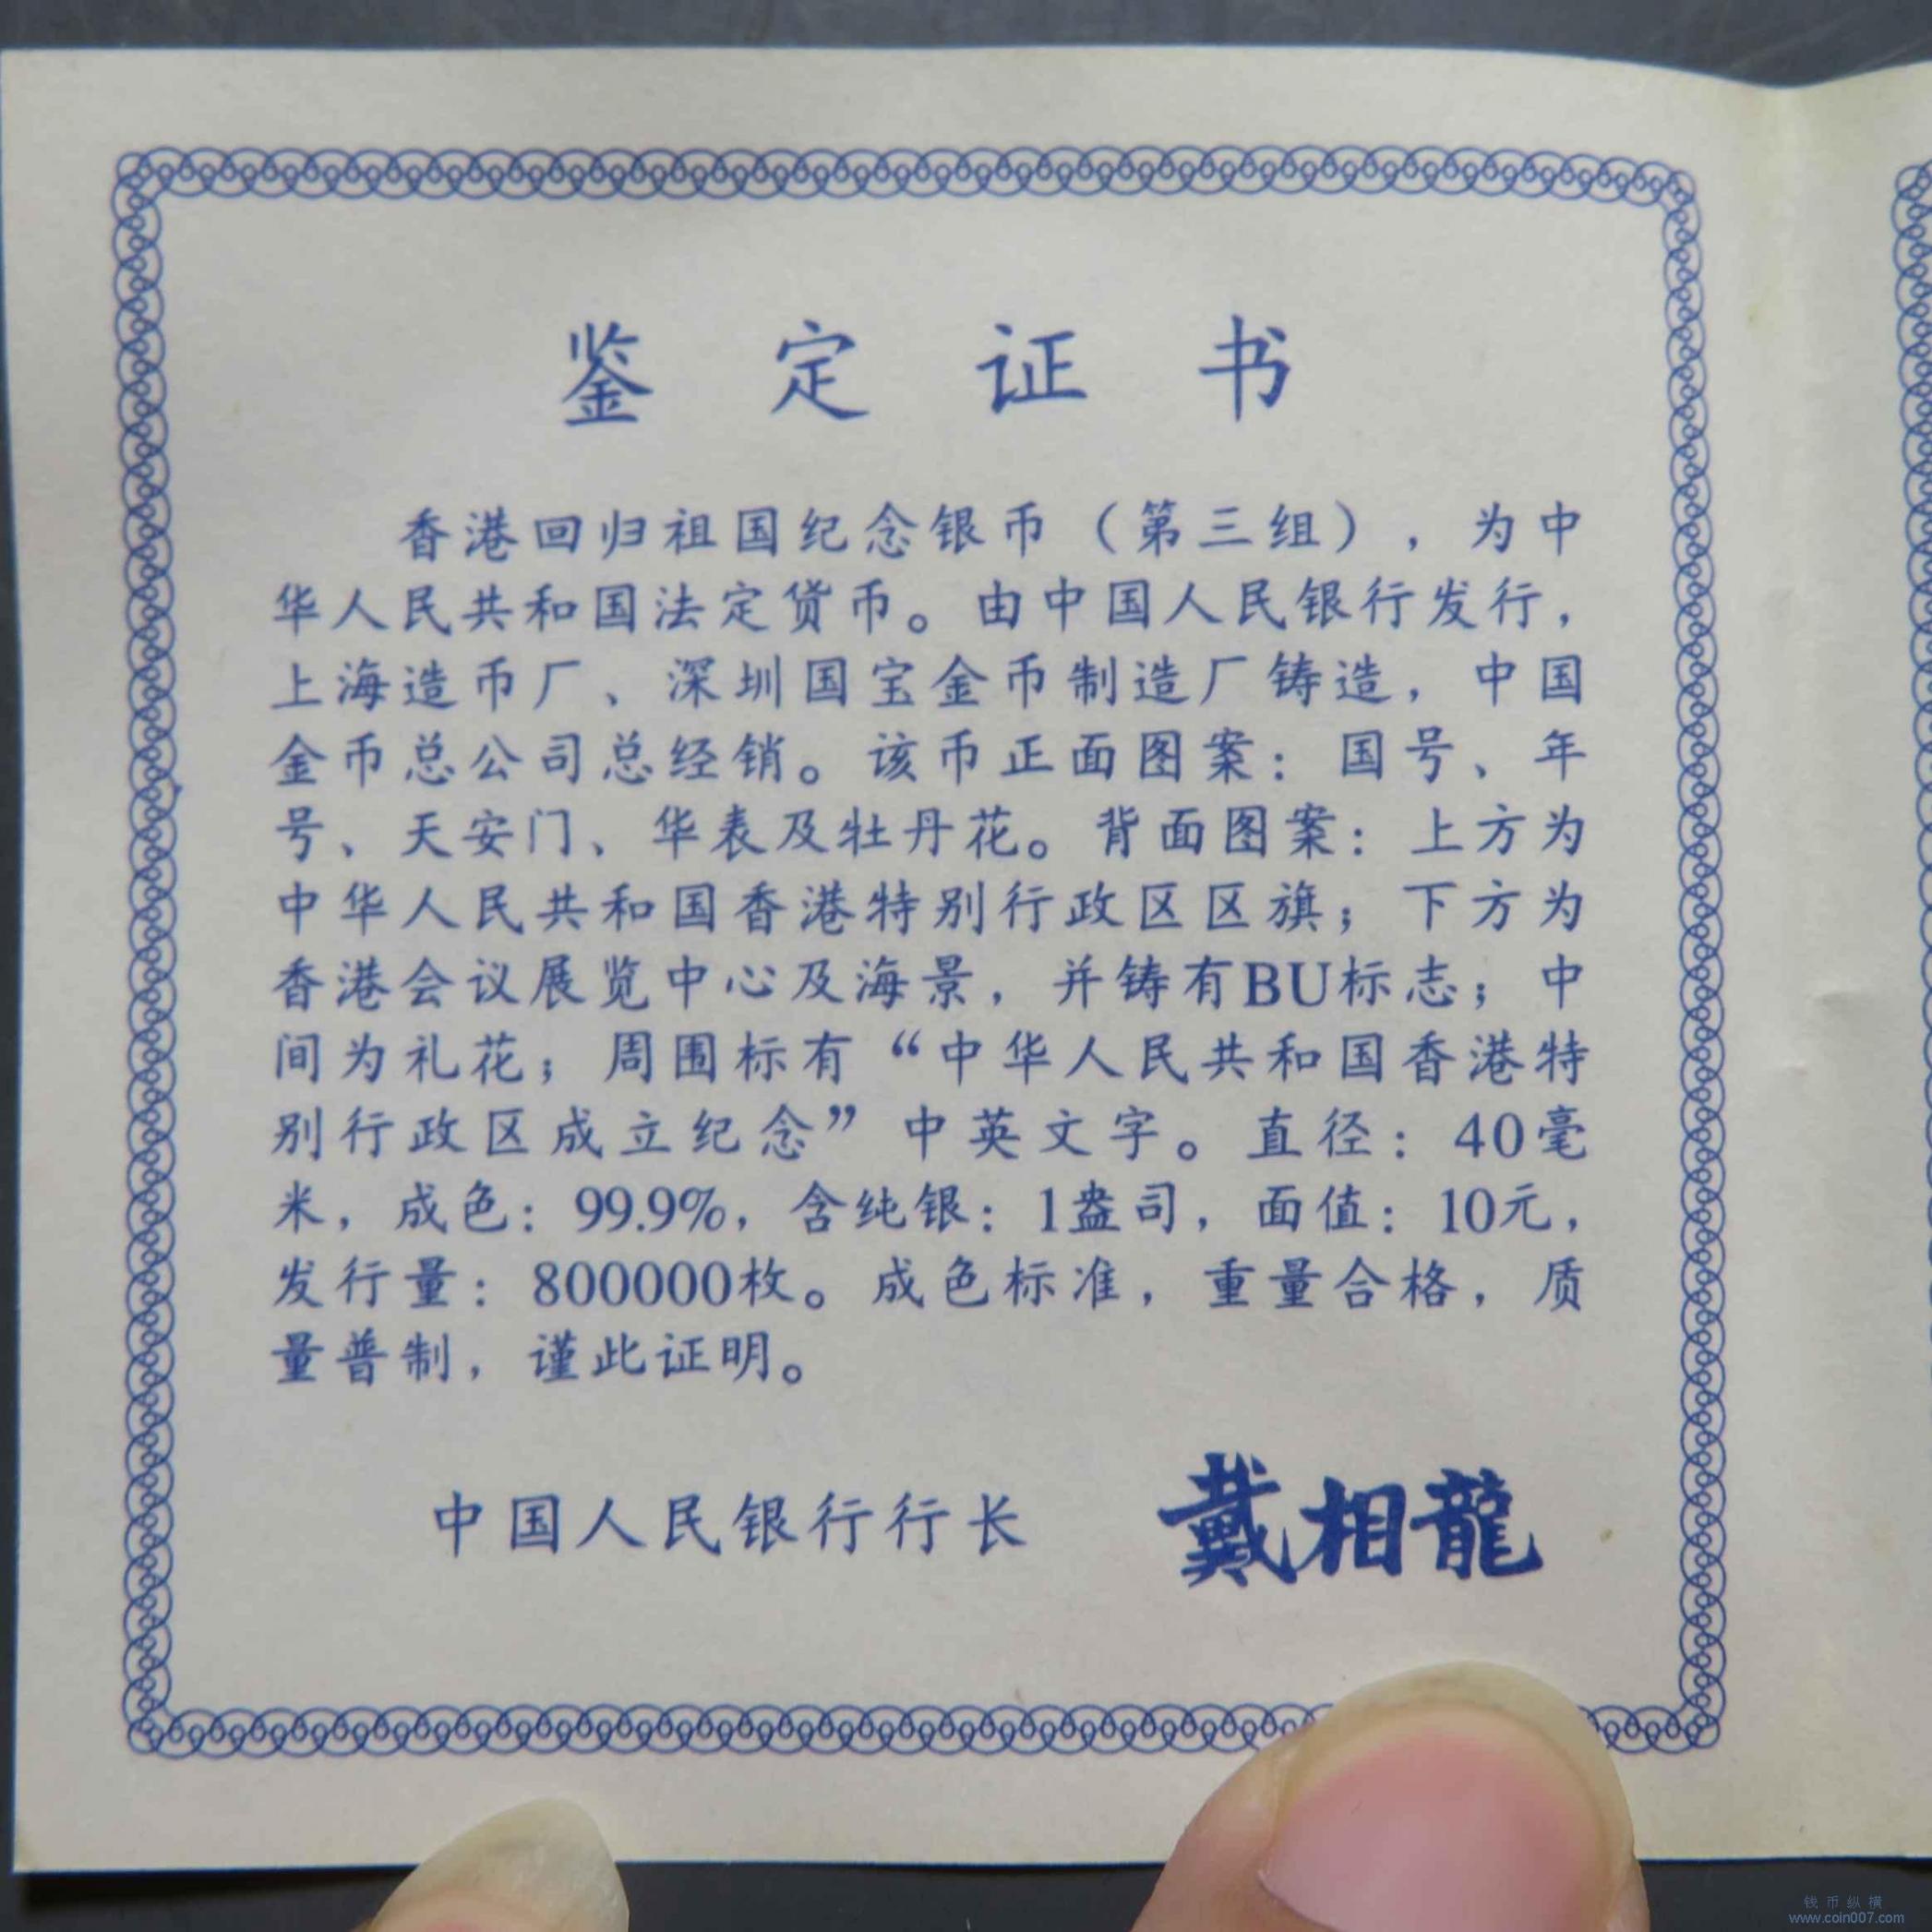 鉴定证书
香港回归祖国纪念银币（第三组），为中
华人民共和国法定货币。由中国人民银行发行，
上海造币厂、深圳国宝金币制造厂铸造，中国
金币总公司总经销。该币正面图案：国号、年
号、天安门、华表及牡丹花。背面图案：上方为
中华人民共和国香港特别行政区区旗；下方为
香港会议展览中心及海景，并铸有BU标志；中
间为礼花；周围标有“中华人民共和国香港特
别行政区成立纪念”中英文字。直径：40毫
米，成色：99.9%，含纯银：1盎司，面值：10元，
发行量：800000枚。成色标准，重量合格，质
量普制，谨此证明。
中国人民银行行长 戴相龍
钱币纵横
www.coin007.com